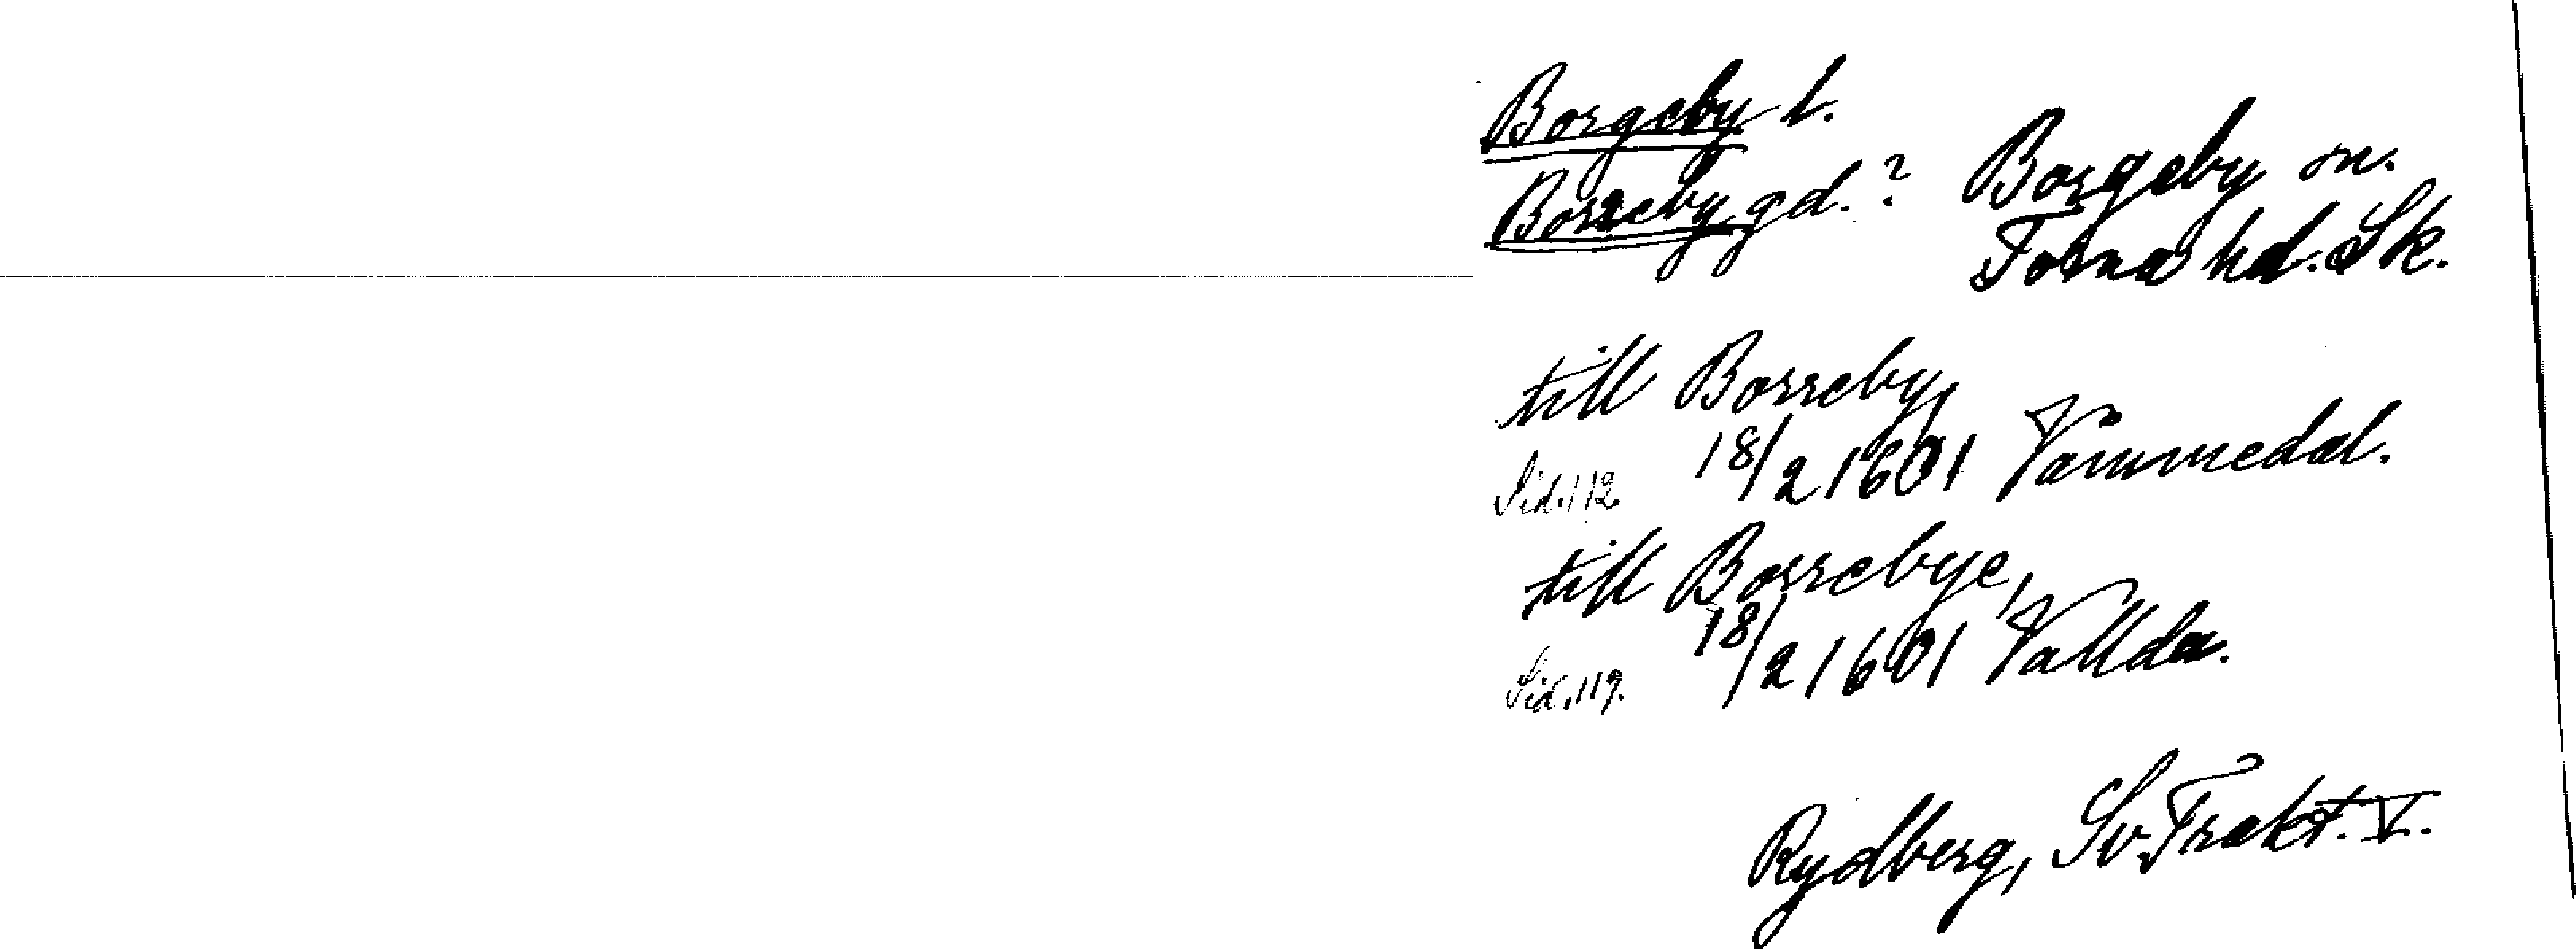 Borgeby l.
Borreby gd.? Borgeby sn.
Torna hd. Sk.
till Borreby,
Sid. 112 18/2 1601 Vämmedal.
till Borrebye,
Sid. 119. 18/2 1601 Vallda.
Rydberg, Sv. Trakt. V.